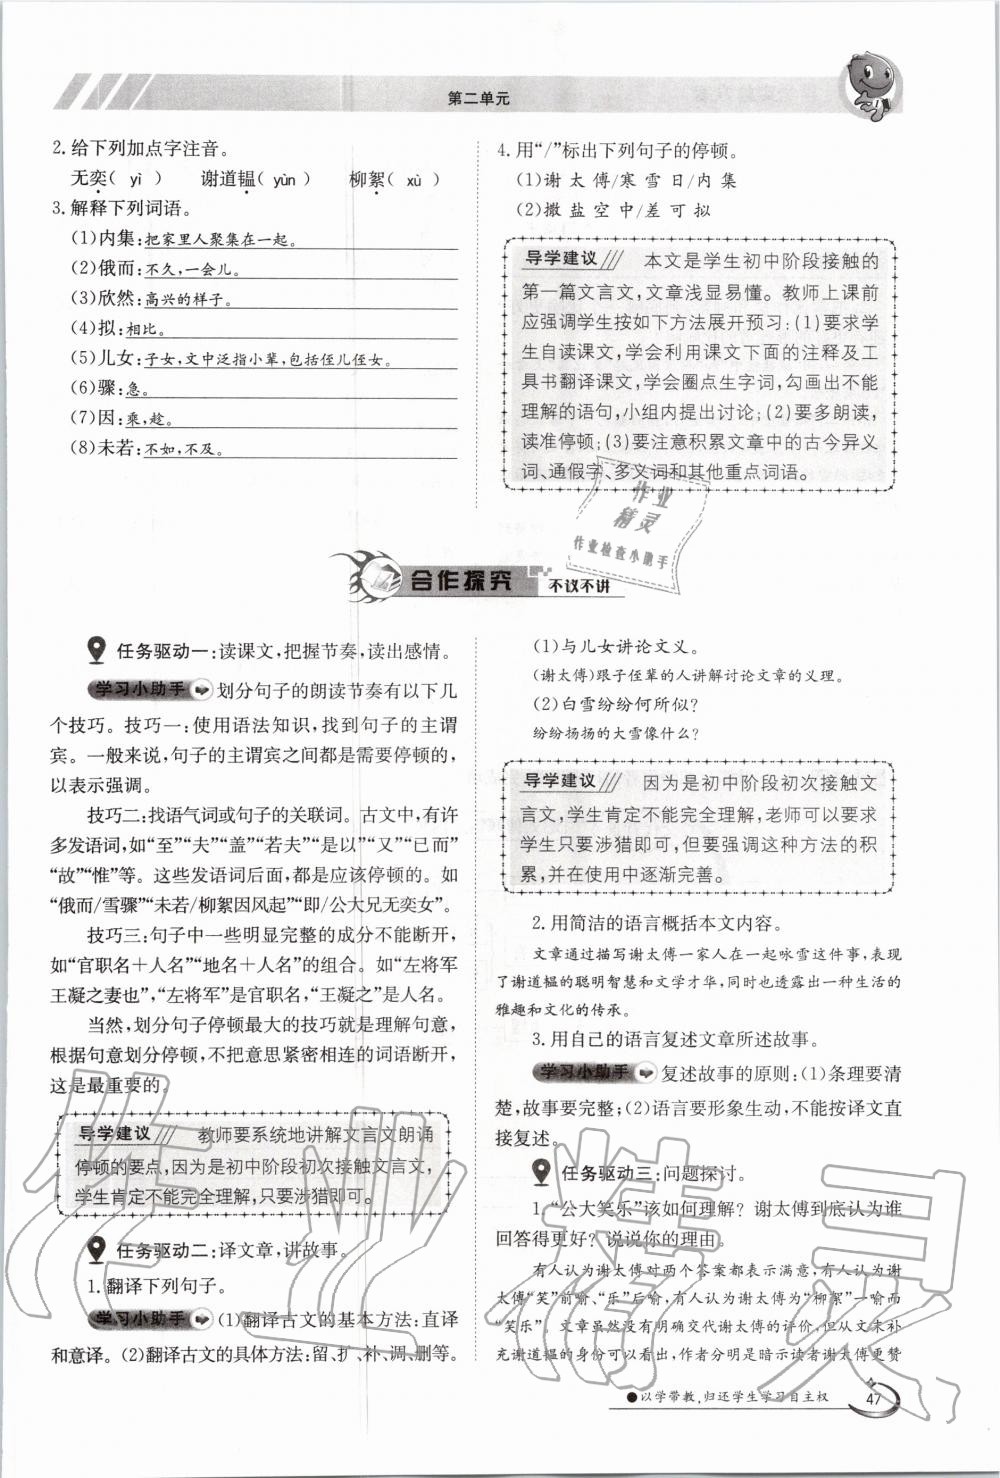 第二单元
2.给下列加点字注音。
无奕( yì )　谢道韫( yùn )　柳絮( xù )
3.解释下列词语。
(1)内集:把家里人聚集在一起。
(2)俄而:不久,一会儿。
(3)欣然:高兴的样子。
(4)拟:相比。
(5)儿女:子女,文中泛指小辈,包括侄儿侄女。
(6)骤:急。
(7)因:乘,趁。
(8)未若:不如,不及。
4.用“/”标出下列句子的停顿。
(1)谢太傅/寒雪日/内集
(2)撒盐空中/差可拟
导学建议 本文是学生初中阶段接触的
第一篇文言文,文章浅显易懂。教师上课前
应强调学生按如下方法展开预习:(1)要求学
生自读课文,学会利用课文下面的注释及工
具书翻译课文,学会圈点生字词,勾画出不能
理解的语句,小组内提出讨论;(2)要多朗读,
读准停顿;(3)要注意积累文章中的古今异义
词、通假字、多义词和其他重点词语。
作业
精灵
作业检查小助手
合作探究 不议不讲
任务驱动一:读课文,把握节奏,读出感情。
学习小助手 划分句子的朗读节奏有以下几
个技巧。技巧一:使用语法知识,找到句子的主谓
宾。一般来说,句子的主谓宾之间都是需要停顿的,
以表示强调。
技巧二:找语气词或句子的关联词。古文中,有许
多发语词,如“至”“夫”“盖”“若夫”“是以”“又”“已而”
“故”“惟”等。这些发语词后面,都是应该停顿的。如
“俄而/雪骤”“未若/柳絮因风起”“即/公大兄无奕女”。
技巧三:句子中一些明显完整的成分不能断开,
如“官职名＋人名”“地名＋人名”的组合。如“左将军
王凝之妻也”,“左将军”是官职名,“王凝之”是人名。
当然,划分句子停顿最大的技巧就是理解句意,
根据句意划分停顿,不把意思紧密相连的词语断开,
这是最重要的。
导学建议 教师要系统地讲解文言文朗诵
停顿的要点,因为是初中阶段初次接触文言文,
学生肯定不能完全理解,只要涉猎即可。
任务驱动二:译文章,讲故事。
1.翻译下列句子。
学习小助手 (1)翻译古文的基本方法:直译
和意译。(2)翻译古文的具体方法:留、扩、补、调、删等。
(1)与儿女讲论文义。
(谢太傅)跟子侄辈的人讲解讨论文章的义理。
(2)白雪纷纷何所似?
纷纷扬扬的大雪像什么?
导学建议 因为是初中阶段初次接触文
言文,学生肯定不能完全理解,老师可以要求
学生只要涉猎即可,但要强调这种方法的积
累,并在使用中逐渐完善。
2.用简洁的语言概括本文内容。
文章通过描写谢太傅一家人在一起咏雪这件事,表现
了谢道韫的聪明智慧和文学才华,同时也透露出一种生活的
雅趣和文化的传承。
3.用自己的语言复述文章所述故事。
学习小助手 复述故事的原则:(1)条理要清
楚,故事要完整;(2)语言要形象生动,不能按译文直
接复述。
任务驱动三:问题探讨。
1.“公大笑乐”该如何理解?谢太傅到底认为谁
回答得更好?说说你的理由。
有人认为谢太傅对两个答案都表示满意,有人认为谢
太傅“笑”前喻、“乐”后喻,有人认为谢太傅为“柳絮”一喻而
“笑乐”。文章虽然没有明确交代谢太傅的评价,但从文末补
充谢道韫的身份可以看出,作者分明是暗示读者谢太傅更赞
●以学带教,归还学生学习自主权
47
作业精灵